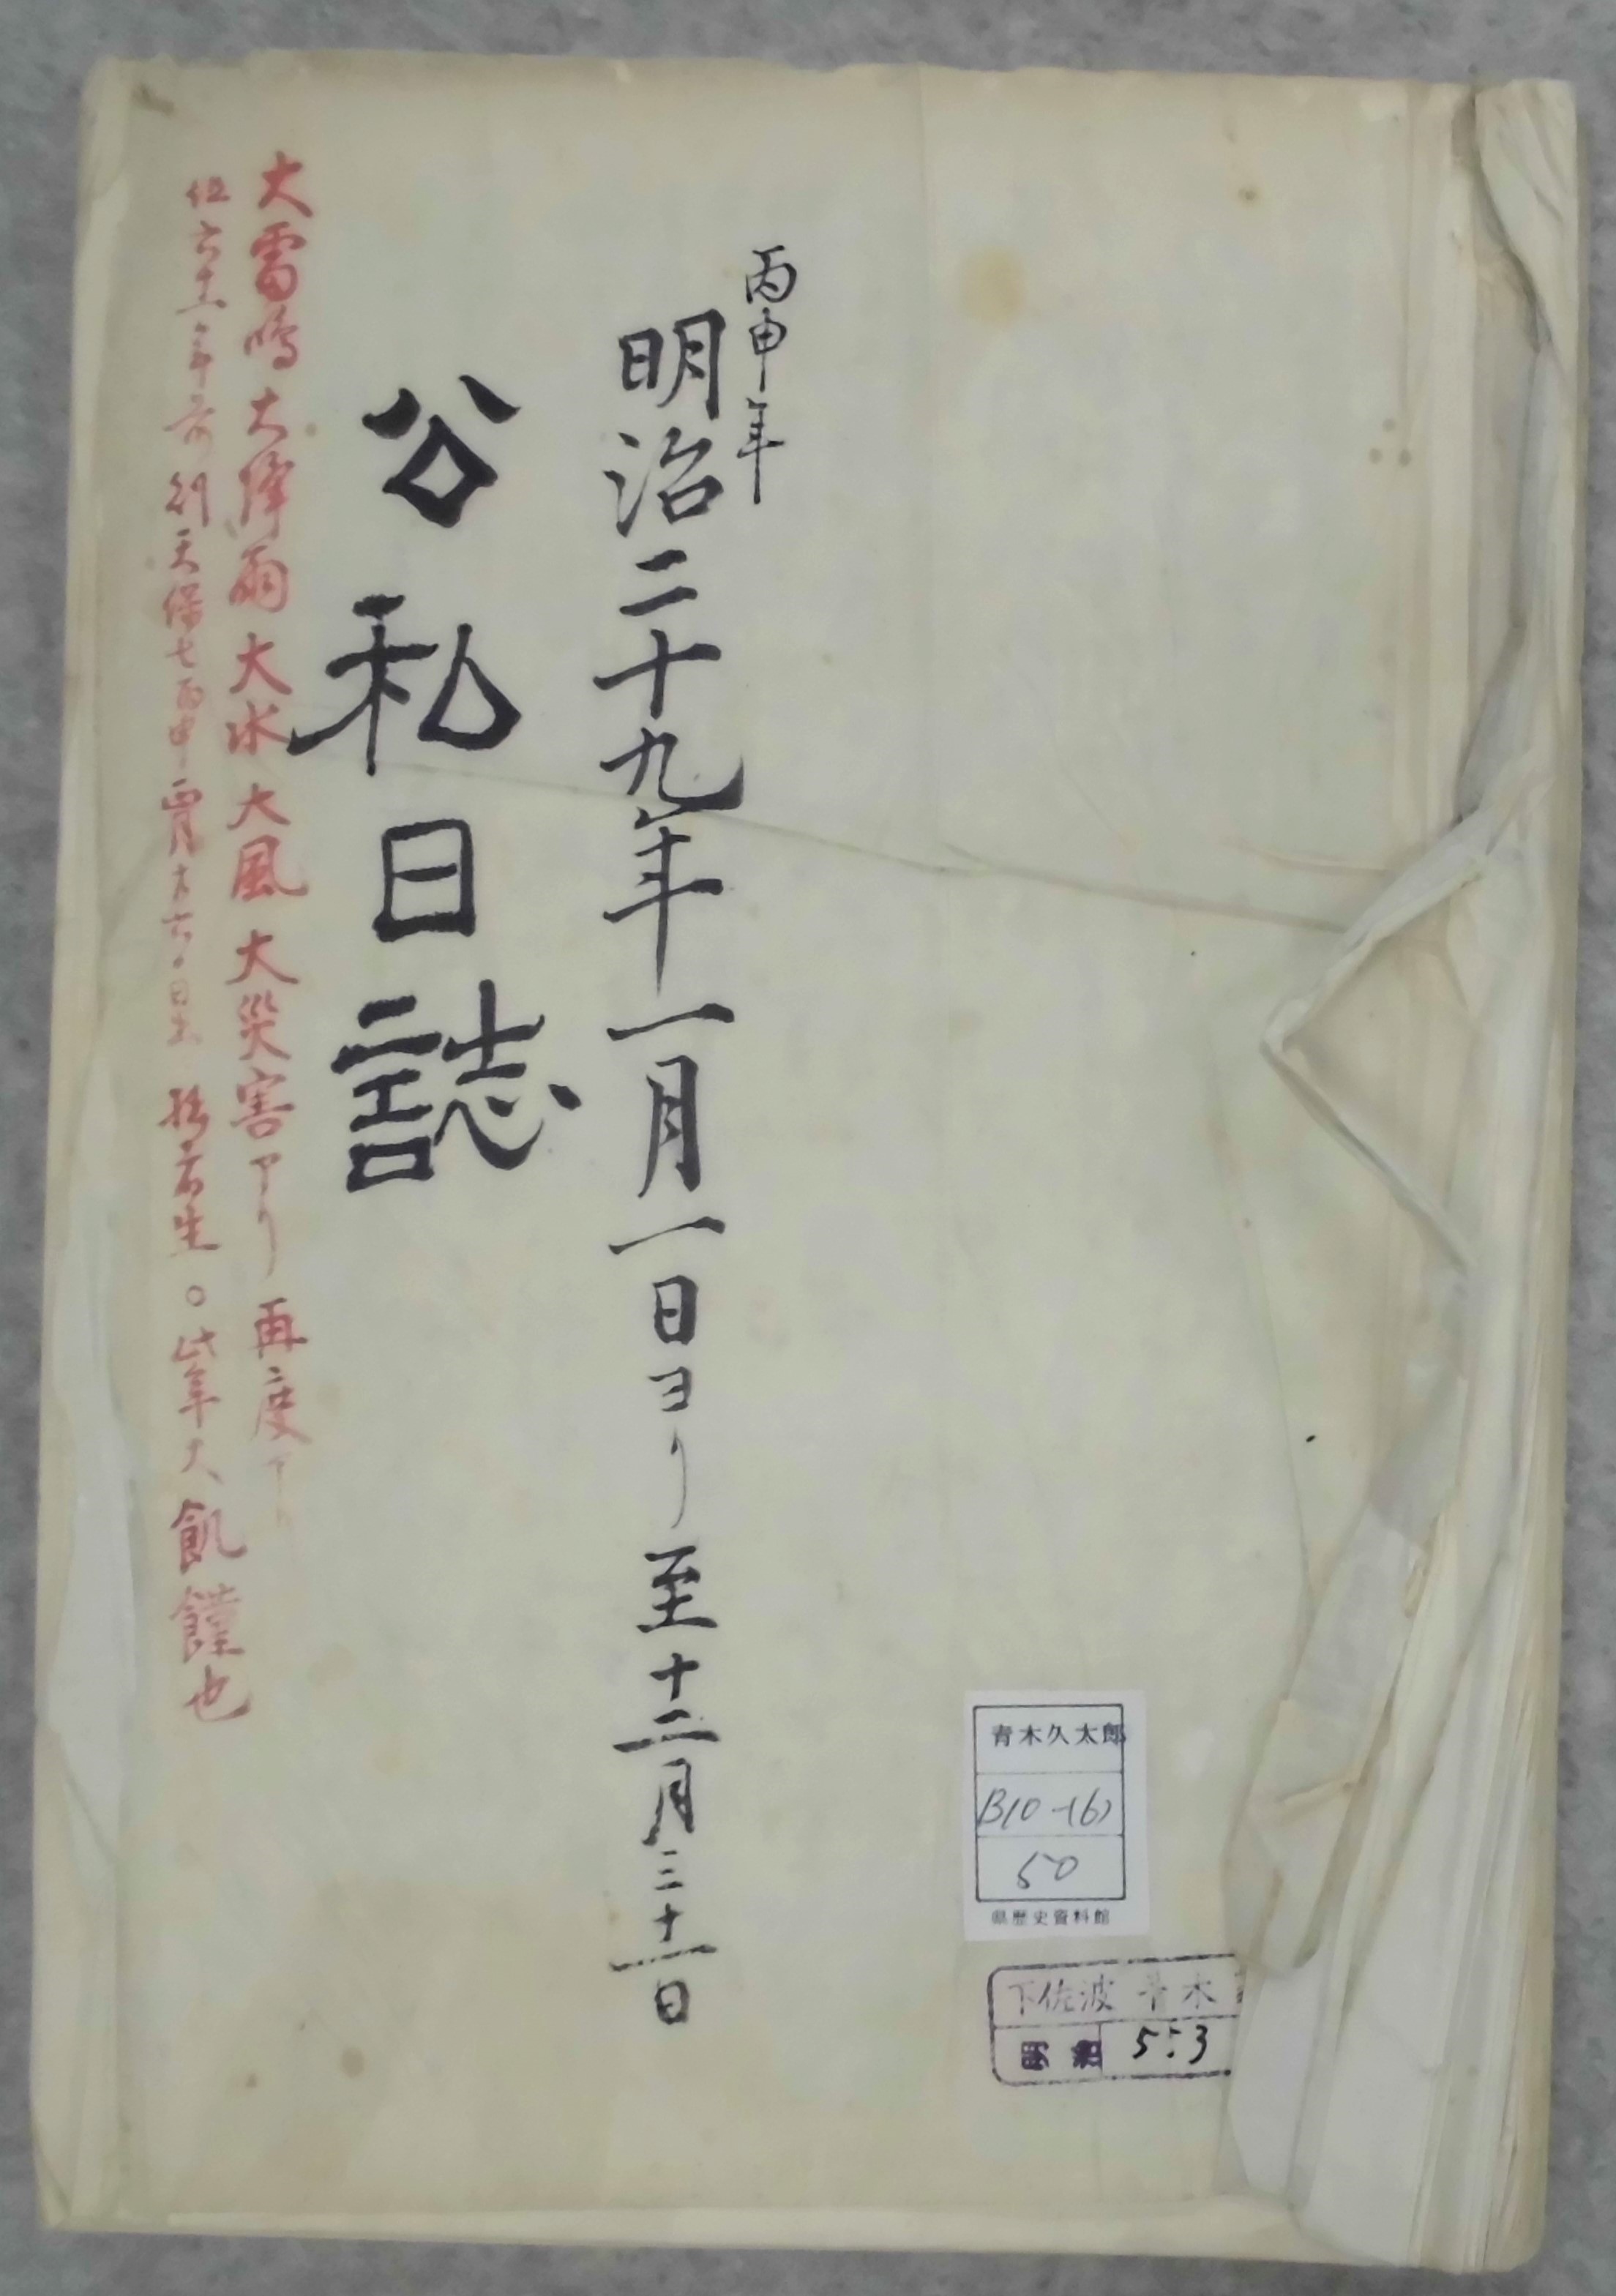 丙申年
明治二十九年一月一日ヨリ至十二月三十一日
公私日誌
大雷鳴大降雨大水大風大災害アリ再度アリ
但六十一年前則天保七丙申 生。此年大飢饉也
青木久太郎
B10-(6)
50
県歴史資料館
下佐波 青木
553